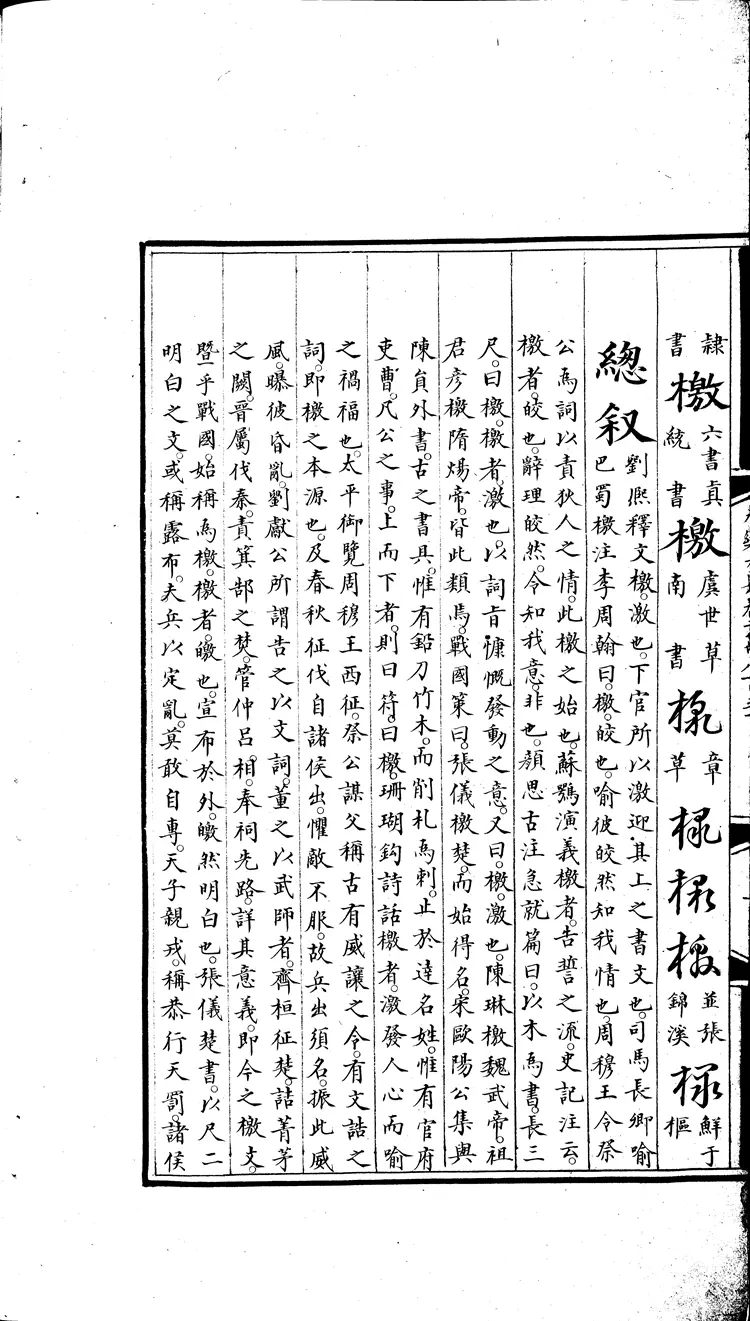 隷書檄六書統眞書檄虞世南書草書檄章草檄檄檄並張錦溪檄鮮于樞
總叙劉熈釋文檄激也下官所以激迎其上之書文也司馬長卿喻
巴蜀檄注李周翰曰檄皎也喻彼皎然知我情也周穆王令祭
公爲詞以責狄人之情此檄之始也蘇鶚演義檄者告誓之流史記注云
檄者皎也辭理皎然令知我意非也顔思古注急就篇曰以木爲書長三
尺曰檄檄者激也以詞旨慷慨發動之意又曰檄激也陳琳檄魏武帝祖
君彦檄隋煬帝皆此類焉戰國策曰張儀檄楚而始得名宋歐陽公集與
陳負外書古之書具惟有鉛刀竹木而削札爲刺止於達名姓惟有官府
吏曹凡公之事上而下者則曰符曰檄珊瑚鈎詩話檄者激發人心而喻
之禍福也太平御覽周穆王西征祭公謀父稱古有威讓之令有文誥之
詞即檄之本源也及春秋征伐自諸侯出懼敵不服故兵出須名振此威
風曝彼昏亂劉獻公所謂告之以文詞董之以武師者齊桓征楚詰菁茅
之闕晋厲伐秦責箕郜之焚管仲吕相奉祠先路詳其意義即今之檄文
暨乎戰國始稱爲檄檄者皦也宣布於外皦然明白也張儀楚書以尺二
明白之文或稱露布夫兵以定亂莫敢自專天子親戎稱恭行天罰諸侯